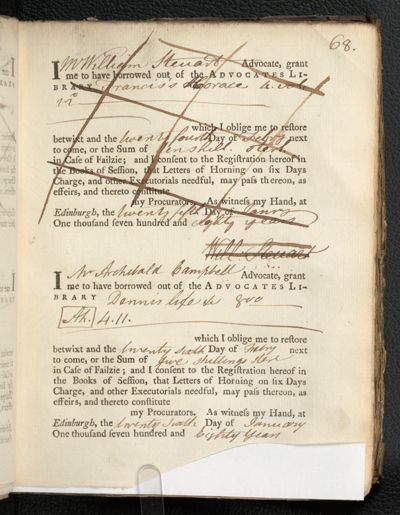 68.
I Mr William Steuart Advocate, grant
me to have borrowed out of the ADVOCATES LI-
BRARY Francis's Horace 4 vol
12o
which I oblige me to restore
betwixt and the twenty fourth Day of Febry next
to come, or the Sum of Ten shill. Sterl
in Case of Failzie; and I consent to the Registration hereof in
the Books of Session, that Letters of Horning on six Days
Charge, and other Executorials needful, may pass thereon, as
effeirs, and thereto constitute
my Procurators. As witness my Hand, at
Edinburgh, the twenty fifth Day of Janry
One thousand seven hundred and eighty years
Will Steuart
I Mr Archibald Campbell Advocate, grant
me to have borrowed out of the ADVOCATES LI-
BRARY Dennis life &c 8vo
Ah. 4.11.
which I oblige me to restore
betwixt and the twenty sixth Day of Febry next
to come, or the Sum of five shillings Ster
in Case of Failzie; and I consent to the Registration hereof in
the Books of Session, that Letters of Horning on six Days
Charge, and other Executorials needful, may pass thereon, as
effeirs, and thereto constitute
my Procurators. As witness my Hand, at
Edinburgh, the twenty sixth Day of January
One thousand seven hundred and Eighty Years